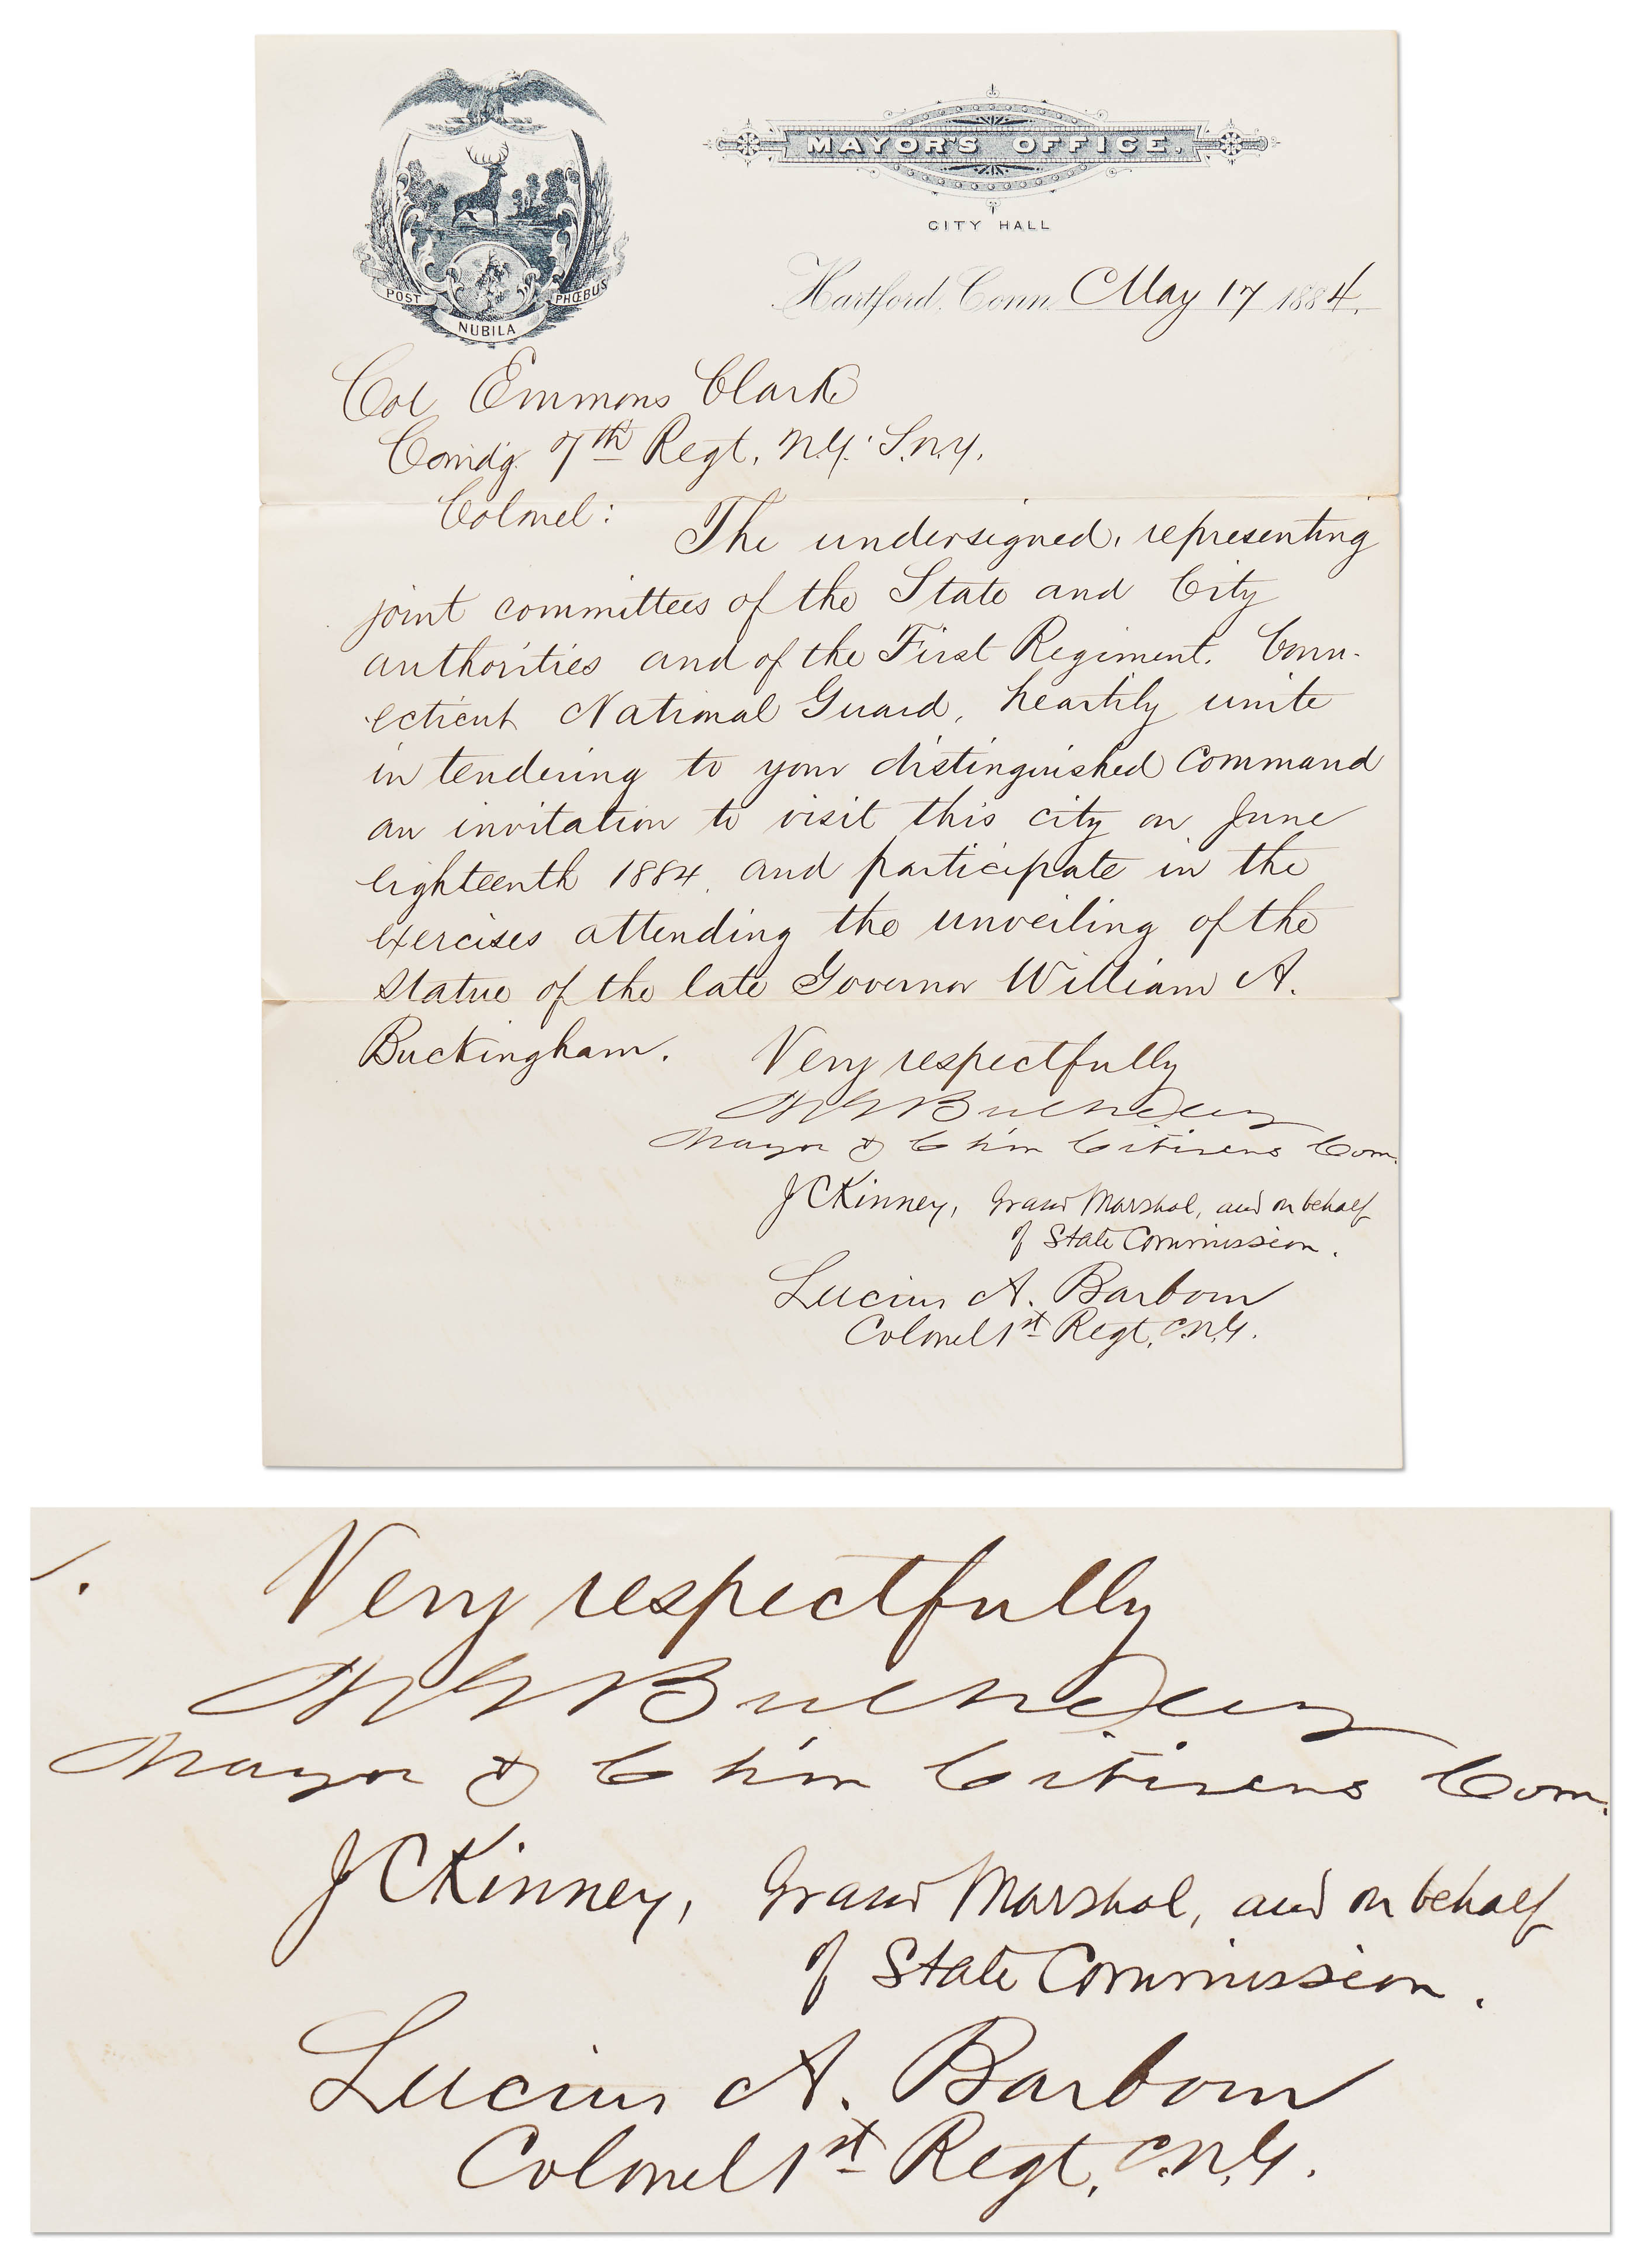 MAYOR'S OFFICE.
CITY HALL
POST NUBILA PHŒBUS
Hartford, Conn. May 17 1884.
Col Emmons Clark
Comdg. 7th Regt. N.G. S.N.Y.
Colonel:
The undersigned, representing
joint committees of the State and City
authorities and of the First Regiment. Conn-
ecticut National Guard, heartily unite
in tendering to your distinguished command
an invitation to visit this city on June
eighteenth 1884, and participate in the
exercises attending the unveiling of the
statue of the late Governor William A.
Buckingham.
Very respectfully
M G Bulkeley
Mayor & Ch'm Citizens Com.
J C Kinney, Grand Marshal, and on behalf
of State Commission.
Lucius A. Barbour
Colonel 1st Regt. C.N.G.
Very respectfully
M G Bulkeley
Mayor & Ch'm Citizens Com.
J C Kinney, Grand Marshal, and on behalf
of State Commission.
Lucius A. Barbour
Colonel 1st Regt. C.N.G.